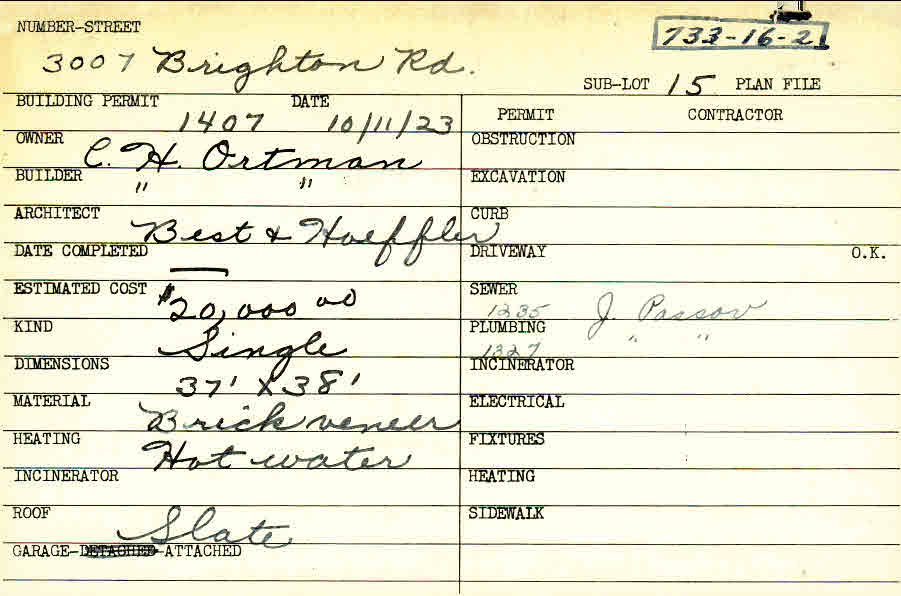 NUMBER-STREET
733-16-21
3007 Brighton Rd.
SUB-LOT 15 PLAN FILE
BUILDING PERMIT DATE
1407 10/11/23
PERMIT CONTRACTOR
OWNER C. H. Ortman
OBSTRUCTION
BUILDER " "
EXCAVATION
ARCHITECT Best & Hoeffler
CURB
DATE COMPLETED —
DRIVEWAY O.K.
ESTIMATED COST $20,000 00
SEWER 1235 J. Passov
KIND Single
PLUMBING 1327 " "
DIMENSIONS 37' X 38'
INCINERATOR
MATERIAL Brick veneer
ELECTRICAL
HEATING Hot water
FIXTURES
INCINERATOR
HEATING
ROOF Slate
SIDEWALK
GARAGE-DETACHED-ATTACHED